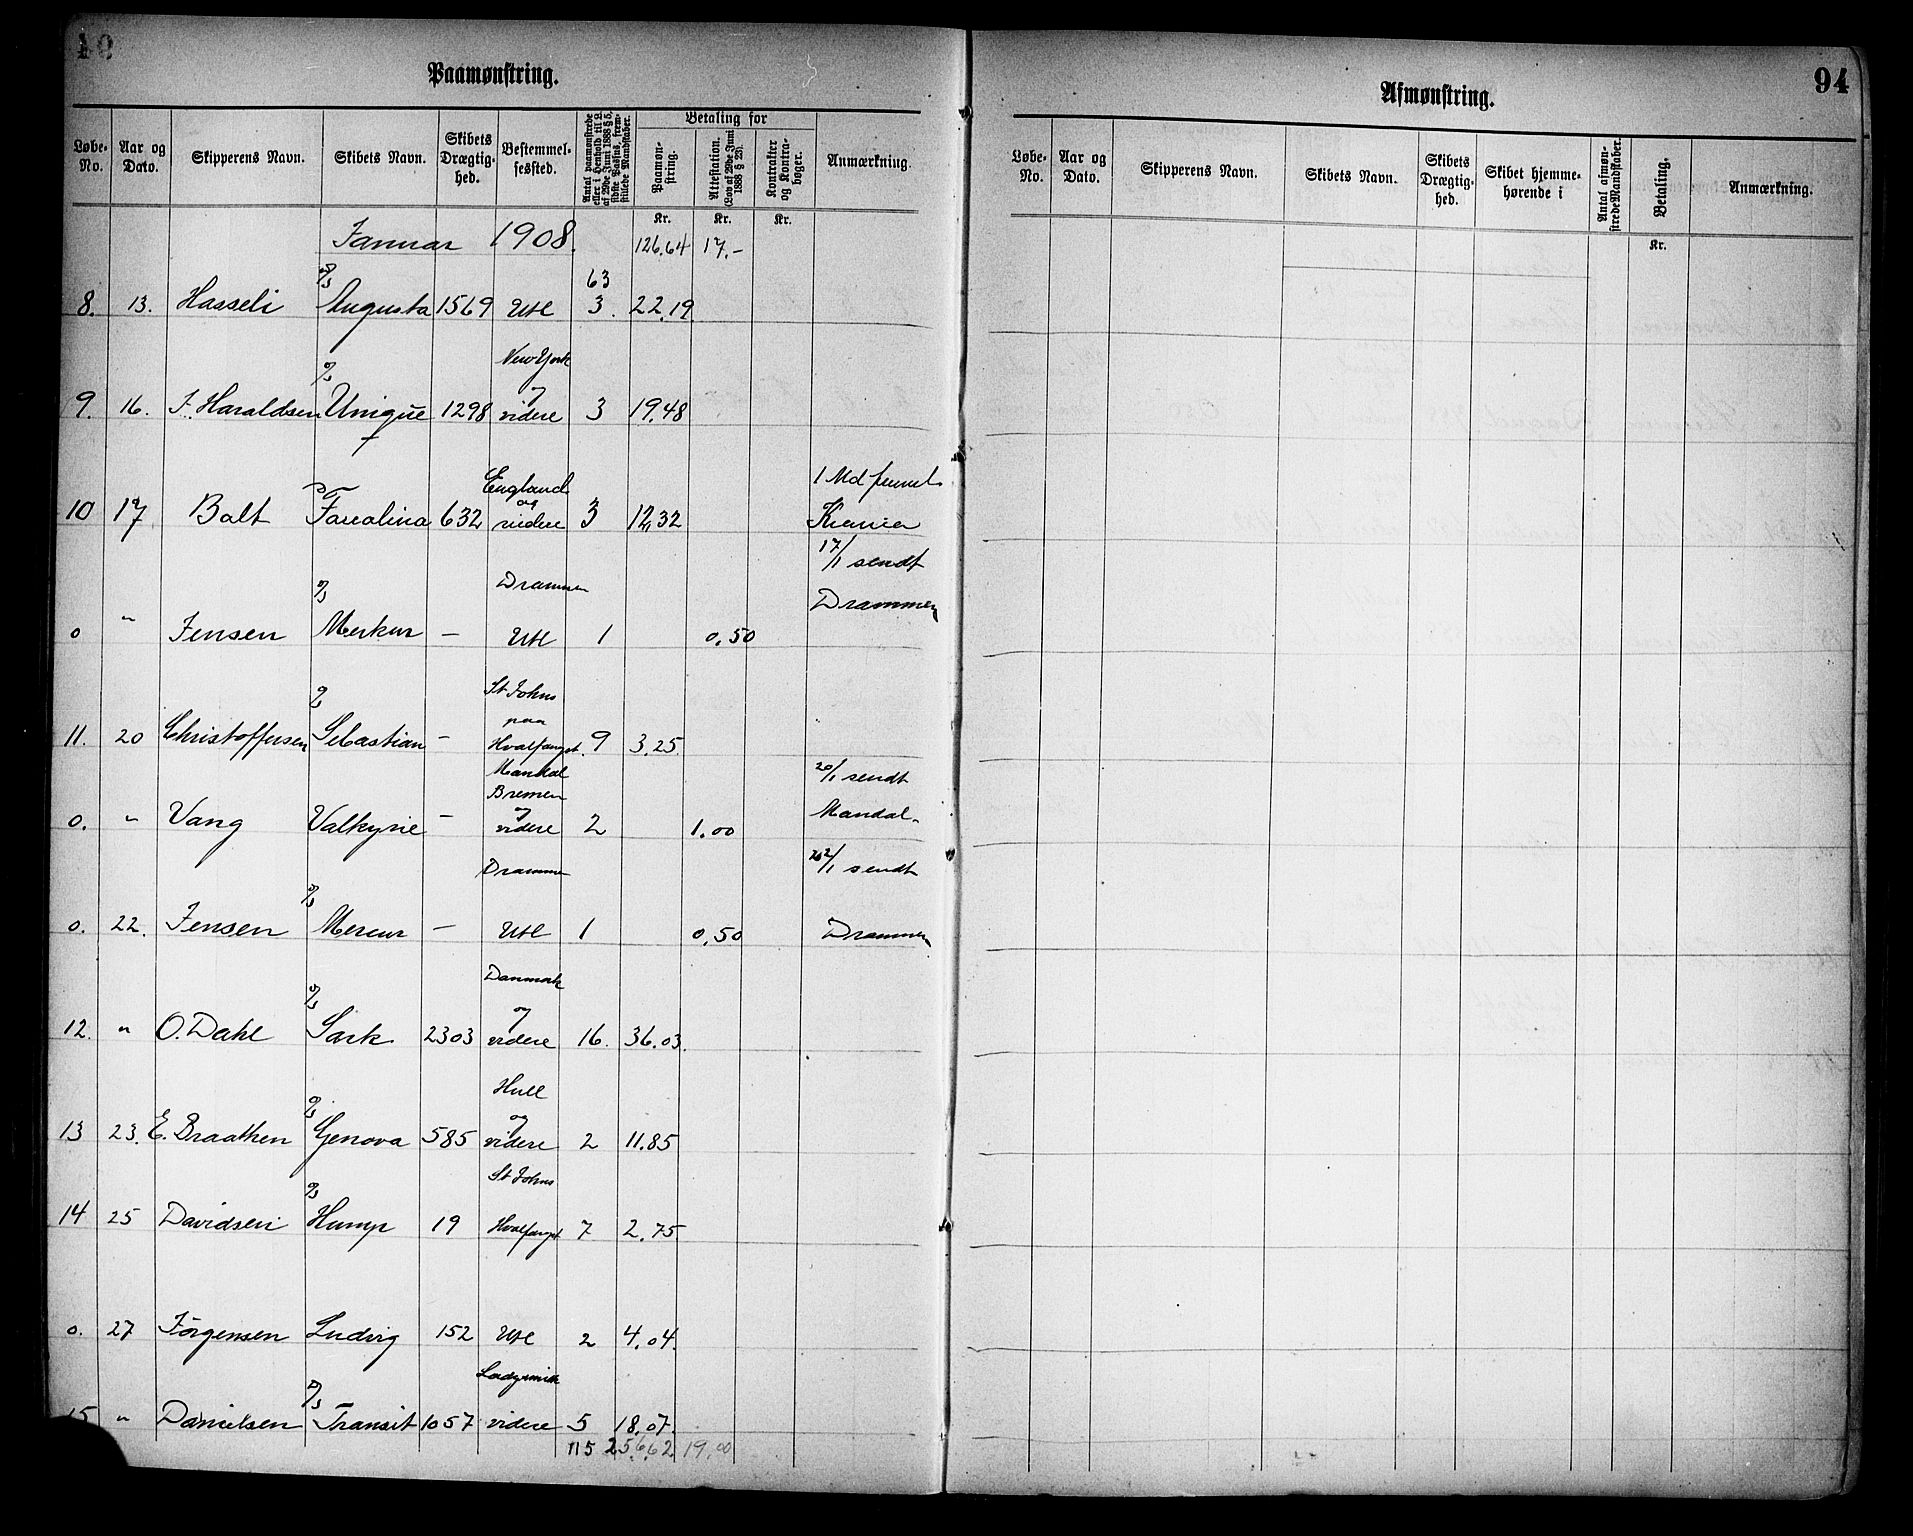 Paamønstring.
Løbe-No. Aar og Dato. Skipperens Navn. Skibets Navn. Skibets Drægtig-hed. Bestemmel-sessted. Antal paamønstrede eller i Henhold til L. af 29de Juni 1888 § 5, sidste Passus, frem-stillede Mandskaber. Betaling for Paamøn-string. Attestation. (Lov af 29de Juni 1888 § 23). Kontrakter og Kontra-bøger. Anmærkning.
Kr. Kr. Kr.
Januar 1908. 126.64 17.-
63
8. 13. Hasseli Augusta 1569 Utl 3. 22.19.
New York
og
9. 16. J. Haraldsen Unique 1298 videre 3 19.48
England 1 Md
og
10 17 Balt 632 videre 3 12,32
17/1 sendt
Drammen Drammen
0 " Jensen Merkur — Utl 1 0.50
St Johns
paa
11. 20 Christoffersen Sebastian — Hvalfanget. 9 3.25.
Mandal 20/1 sendt
Bremen
og Mandal.
0. " Vang Valkyrie — videre 2 1.00
Drammen 22/1 sendt
0. 22. Jensen Mercur — Utl 1 0,50 Drammen
Danmark
og
12. " O. Dahl Sark 2303 videre 16. 36.03.
Hull
og
13 23. E. Braathen Genova 585 videre 2 11.85
St Johns
14 25 Davidsen Hump 19 Hvalfanget 7 2.75
0. 27 Jörgensen Ludvig 152 Utl 2 4.04.
Ladysmith
15 " Danielsen Transit 1057 videre 5 18.07.
115 256.62 19.00
Afmønstring.
94
Løbe-No. Aar og Dato. Skipperens Navn. Skibets Navn. Skibets Drægtig-hed. Skibet hjemme-hørende i Antal afmøn-strede Mandskaber. Betaling. Anmærkning.
Kr.